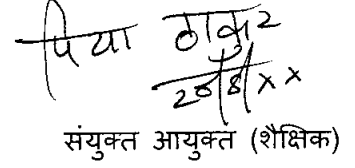 पिया ठाकुर
20/8/xx
संयुक्त आयुक्त (शैक्षिक)